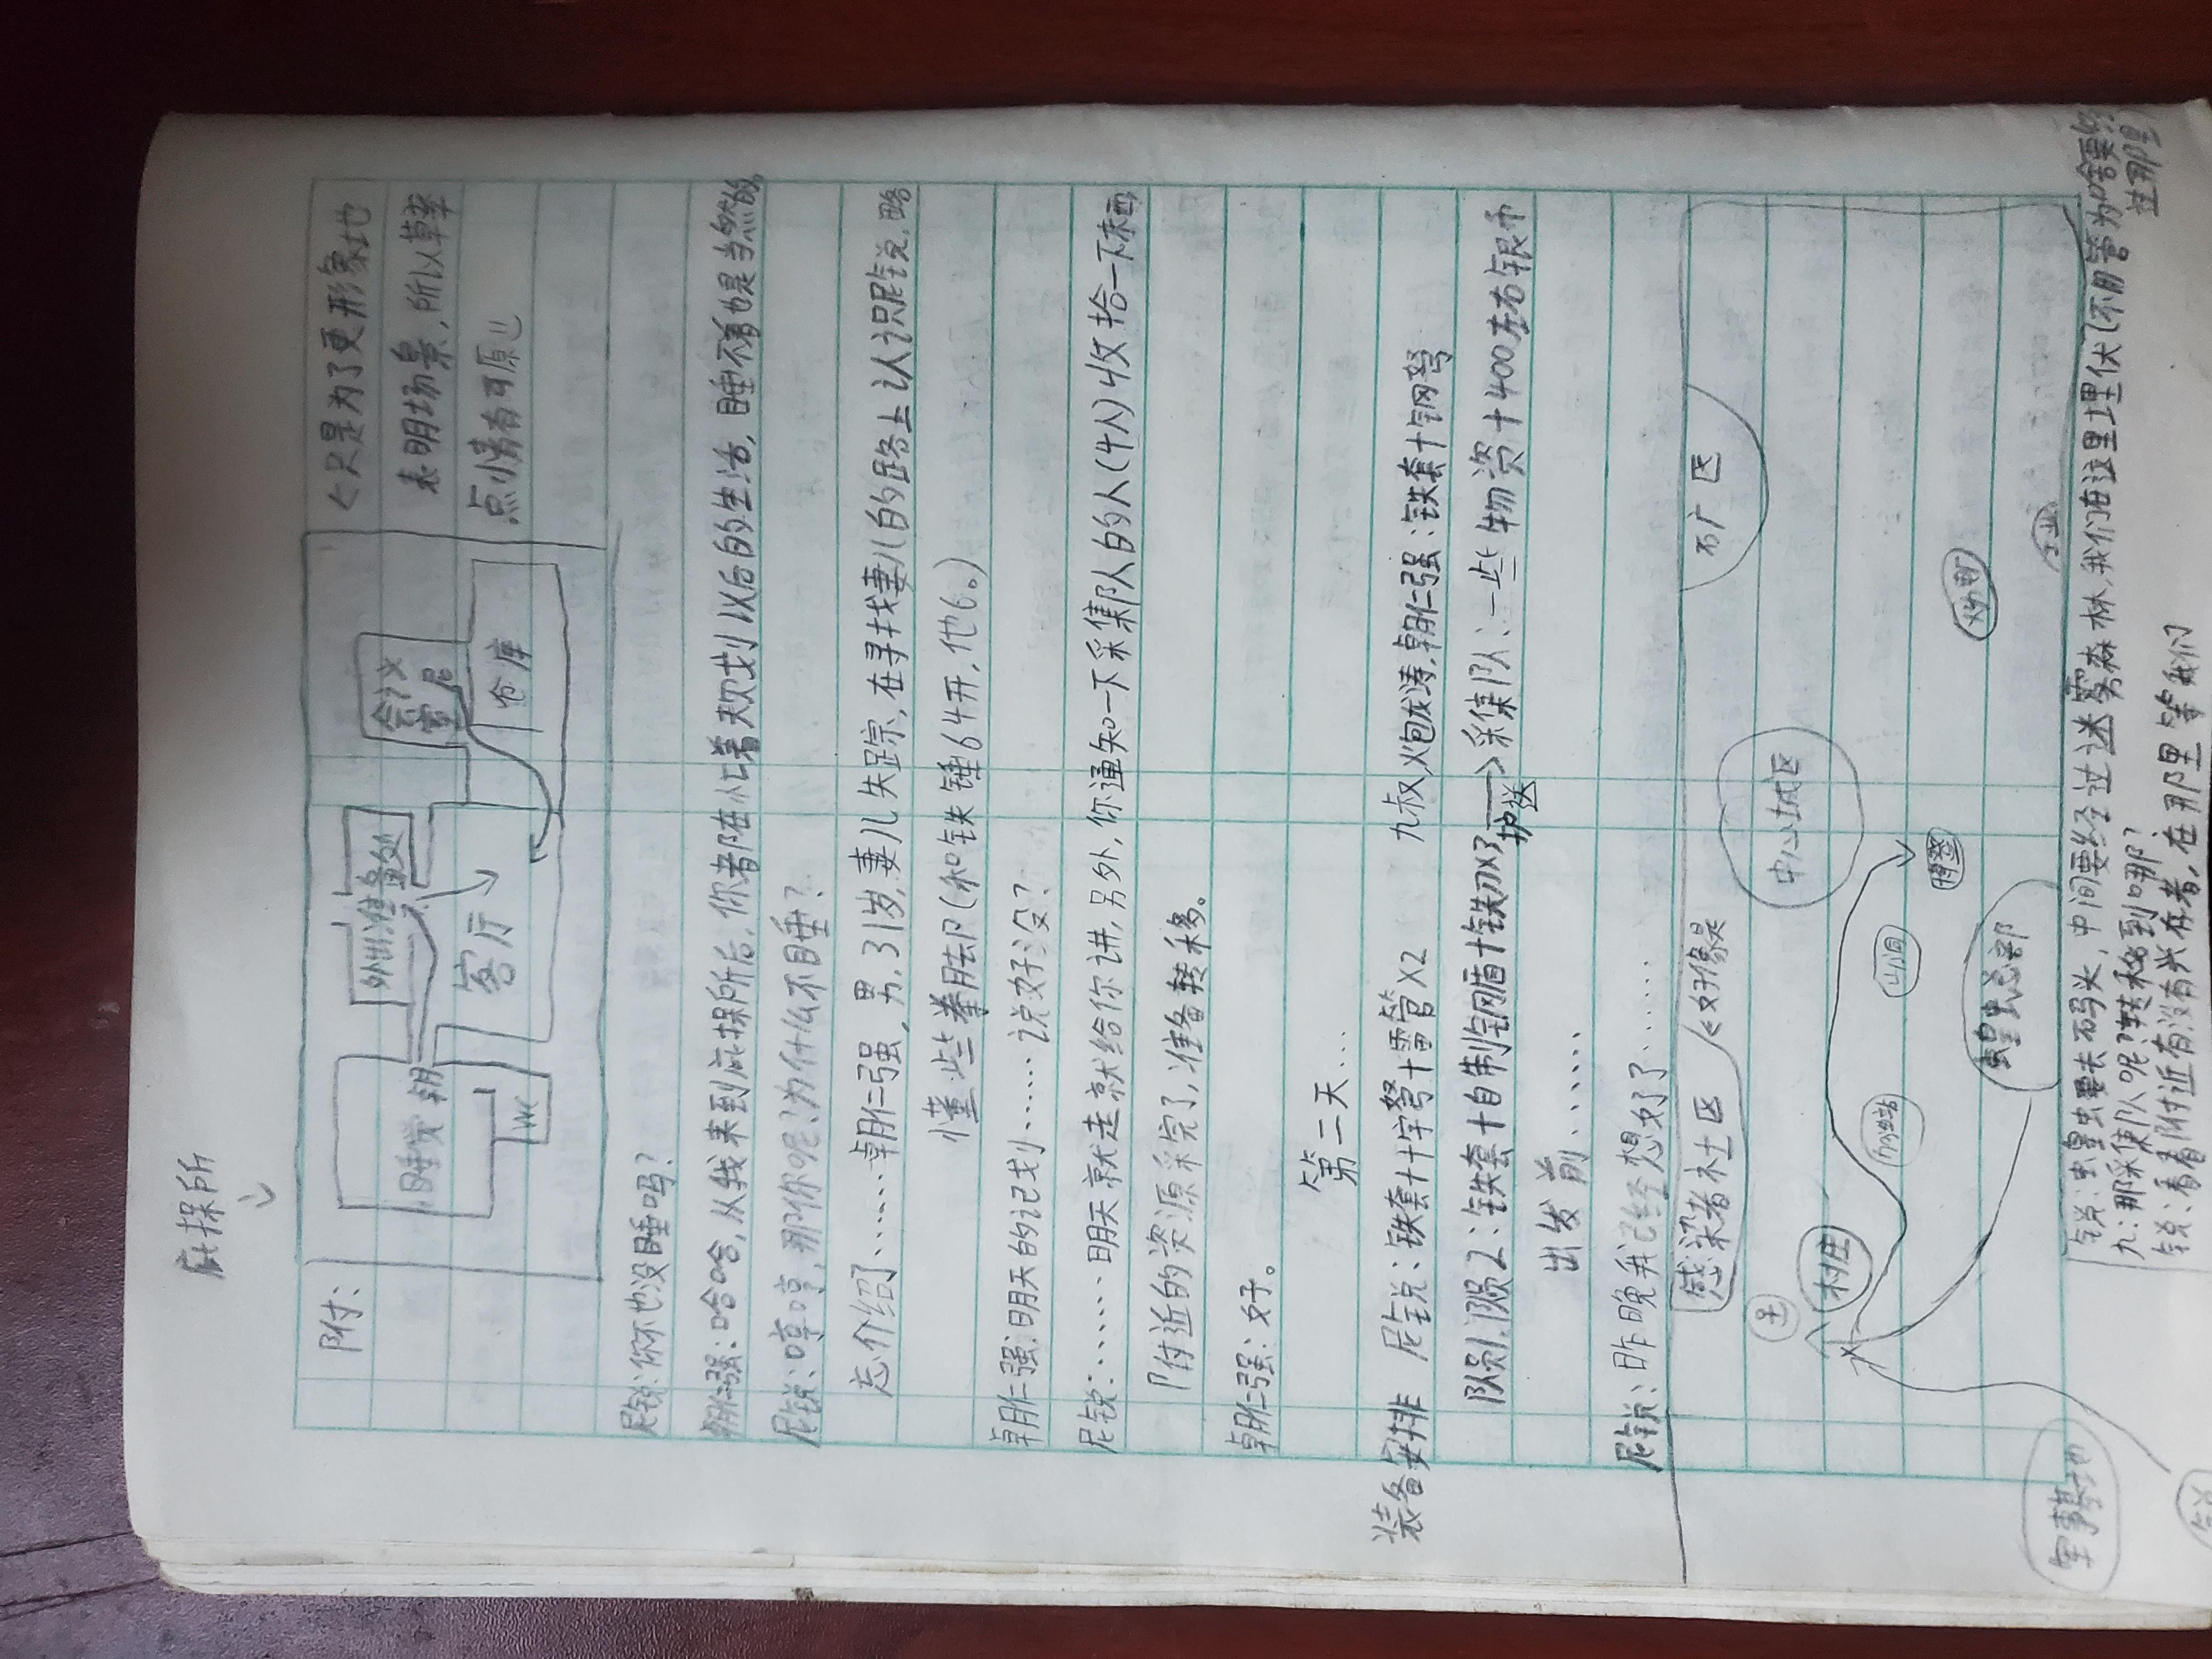 庇探所
附：
睡觉
WC
外出准备处
客厅
会议室
仓库
<只是为了更形象地
表明场景，所以草率
点情有可原
尼锐：你不也没睡吗？
朝仁强：哈哈，从我来到庇探所后，你都在忙着规划以后的生活，睡不着也是当然的
尼锐：哼哼，那你呢？为什么不睡？
忘介绍了……朝仁强，男，31岁，妻儿失踪，在寻找妻儿的路上认识尼锐，略
懂些拳脚（和铁锤64开，他6。）
朝仁强：明天的记划……说好没？
尼锐：……明天就走就给你讲，另外，你通知一下采集队的人（4人）收拾一下东西
附近的资源采完了，准备转移。
朝仁强：好。
第二天…
装备安排 尼锐：铁套+十字弩+雷管X2 九叔，火炮龙涛，朝仁强：铁套+钢弩
队员1，队员2：铁套+自制钢盾+铁刀X3 护送→采集队：一些物资+400左右银币
出发前……
尼锐：昨晚我已经想好了……
感染者社区
<好像是
中心城区
石厂区
村庄
加油站
蝗虫总部
军事基地
锐：蝗虫要去码头，中间要经过迷雾森林，我们在这里埋伏（不用管为啥要经
过那里）
九：那采集队呢？转移到哪？
锐：看看附近有没有兴存者，在那里等我们